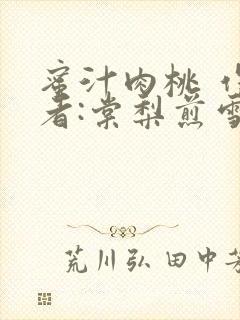 蜜汁肉桃 作
者:棠梨煎雪
荒川弘 田中芳